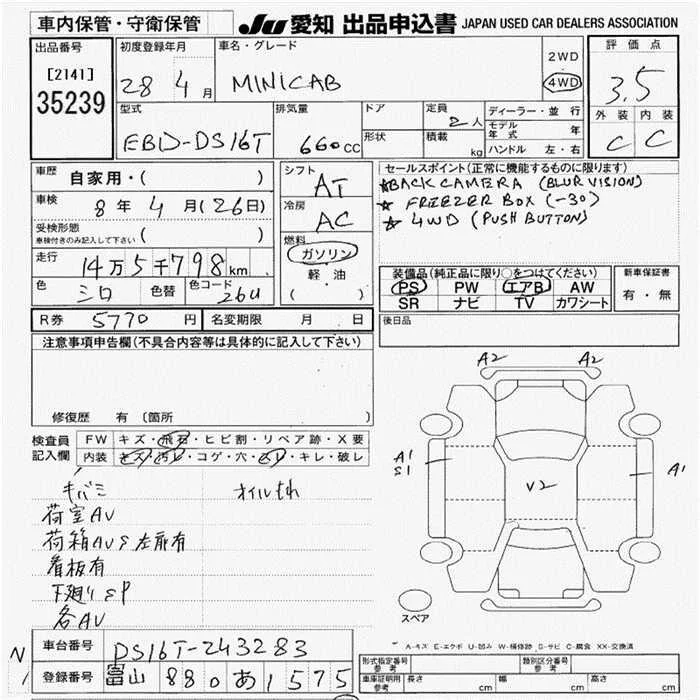 車内保管・守衛保管
JU 愛知 出品申込書 JAPAN USED CAR DEALERS ASSOCIATION
出品番号
[2141]
35239
初度登録年月
28 4月
車名・グレード
MINICAB
2WD
4WD
評価点
3.5
外装 内装
C C
型式
EBD-DS16T
排気量
660cc
ドア
形状
定員
2人
積載
kg
ディーラー・並行
モデル年式 年
ハンドル 左・右
車歴
自家用・( )
車検
8年4月(26日)
受検形態
車検付きのみ記入して下さい ( )
走行
14万5千798km
色
シロ
色替
色コード
26U
シフト
AT
冷房
AC
燃料
ガソリン
軽油
( )
セールスポイント(正常に機能するものに限ります)
★BACK CAMERA (BLUR VISION)
★ FREEZER BOX (-30)
★ 4WD (PUSH BUTTON)
装備品(純正品に限り○をつけてください)
PS PW エアB AW
SR ナビ TV カワシート
新車保証書
有・無
R券 5770円
名変期限 月 日
後日品
注意事項申告欄(不具合内容等は具体的に記入して下さい)
修復歴 有 〔箇所 〕
検査員記入欄
FW キズ・飛石・ヒビ割・リペア跡・X要
内装 キズ・汚レ・コゲ・穴・スリ・キレ・破レ
キバミ オイルもれ
荷室AU
荷箱AU 左扉有
看板有
下廻りSP
各AU
A2 A2
A1
S1
V2
A1
スペア
A-キズ E-エクボ U-凹み W-補修跡 S-サビ C-腐食 XX-交換済
車台番号 DS16T-243283
登録番号 富山 880 あ 1575
型式指定番号 参考
類別区分番号 参考
車庫証明用 参考 長さ cm 幅 cm 高さ cm